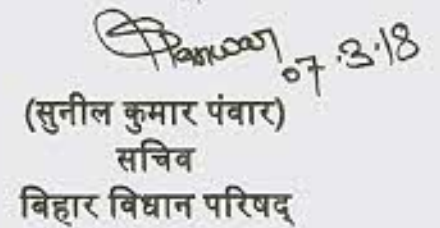 Panwar
07.3.18
(सुनील कुमार पंवार)
सचिव
बिहार विधान परिषद्